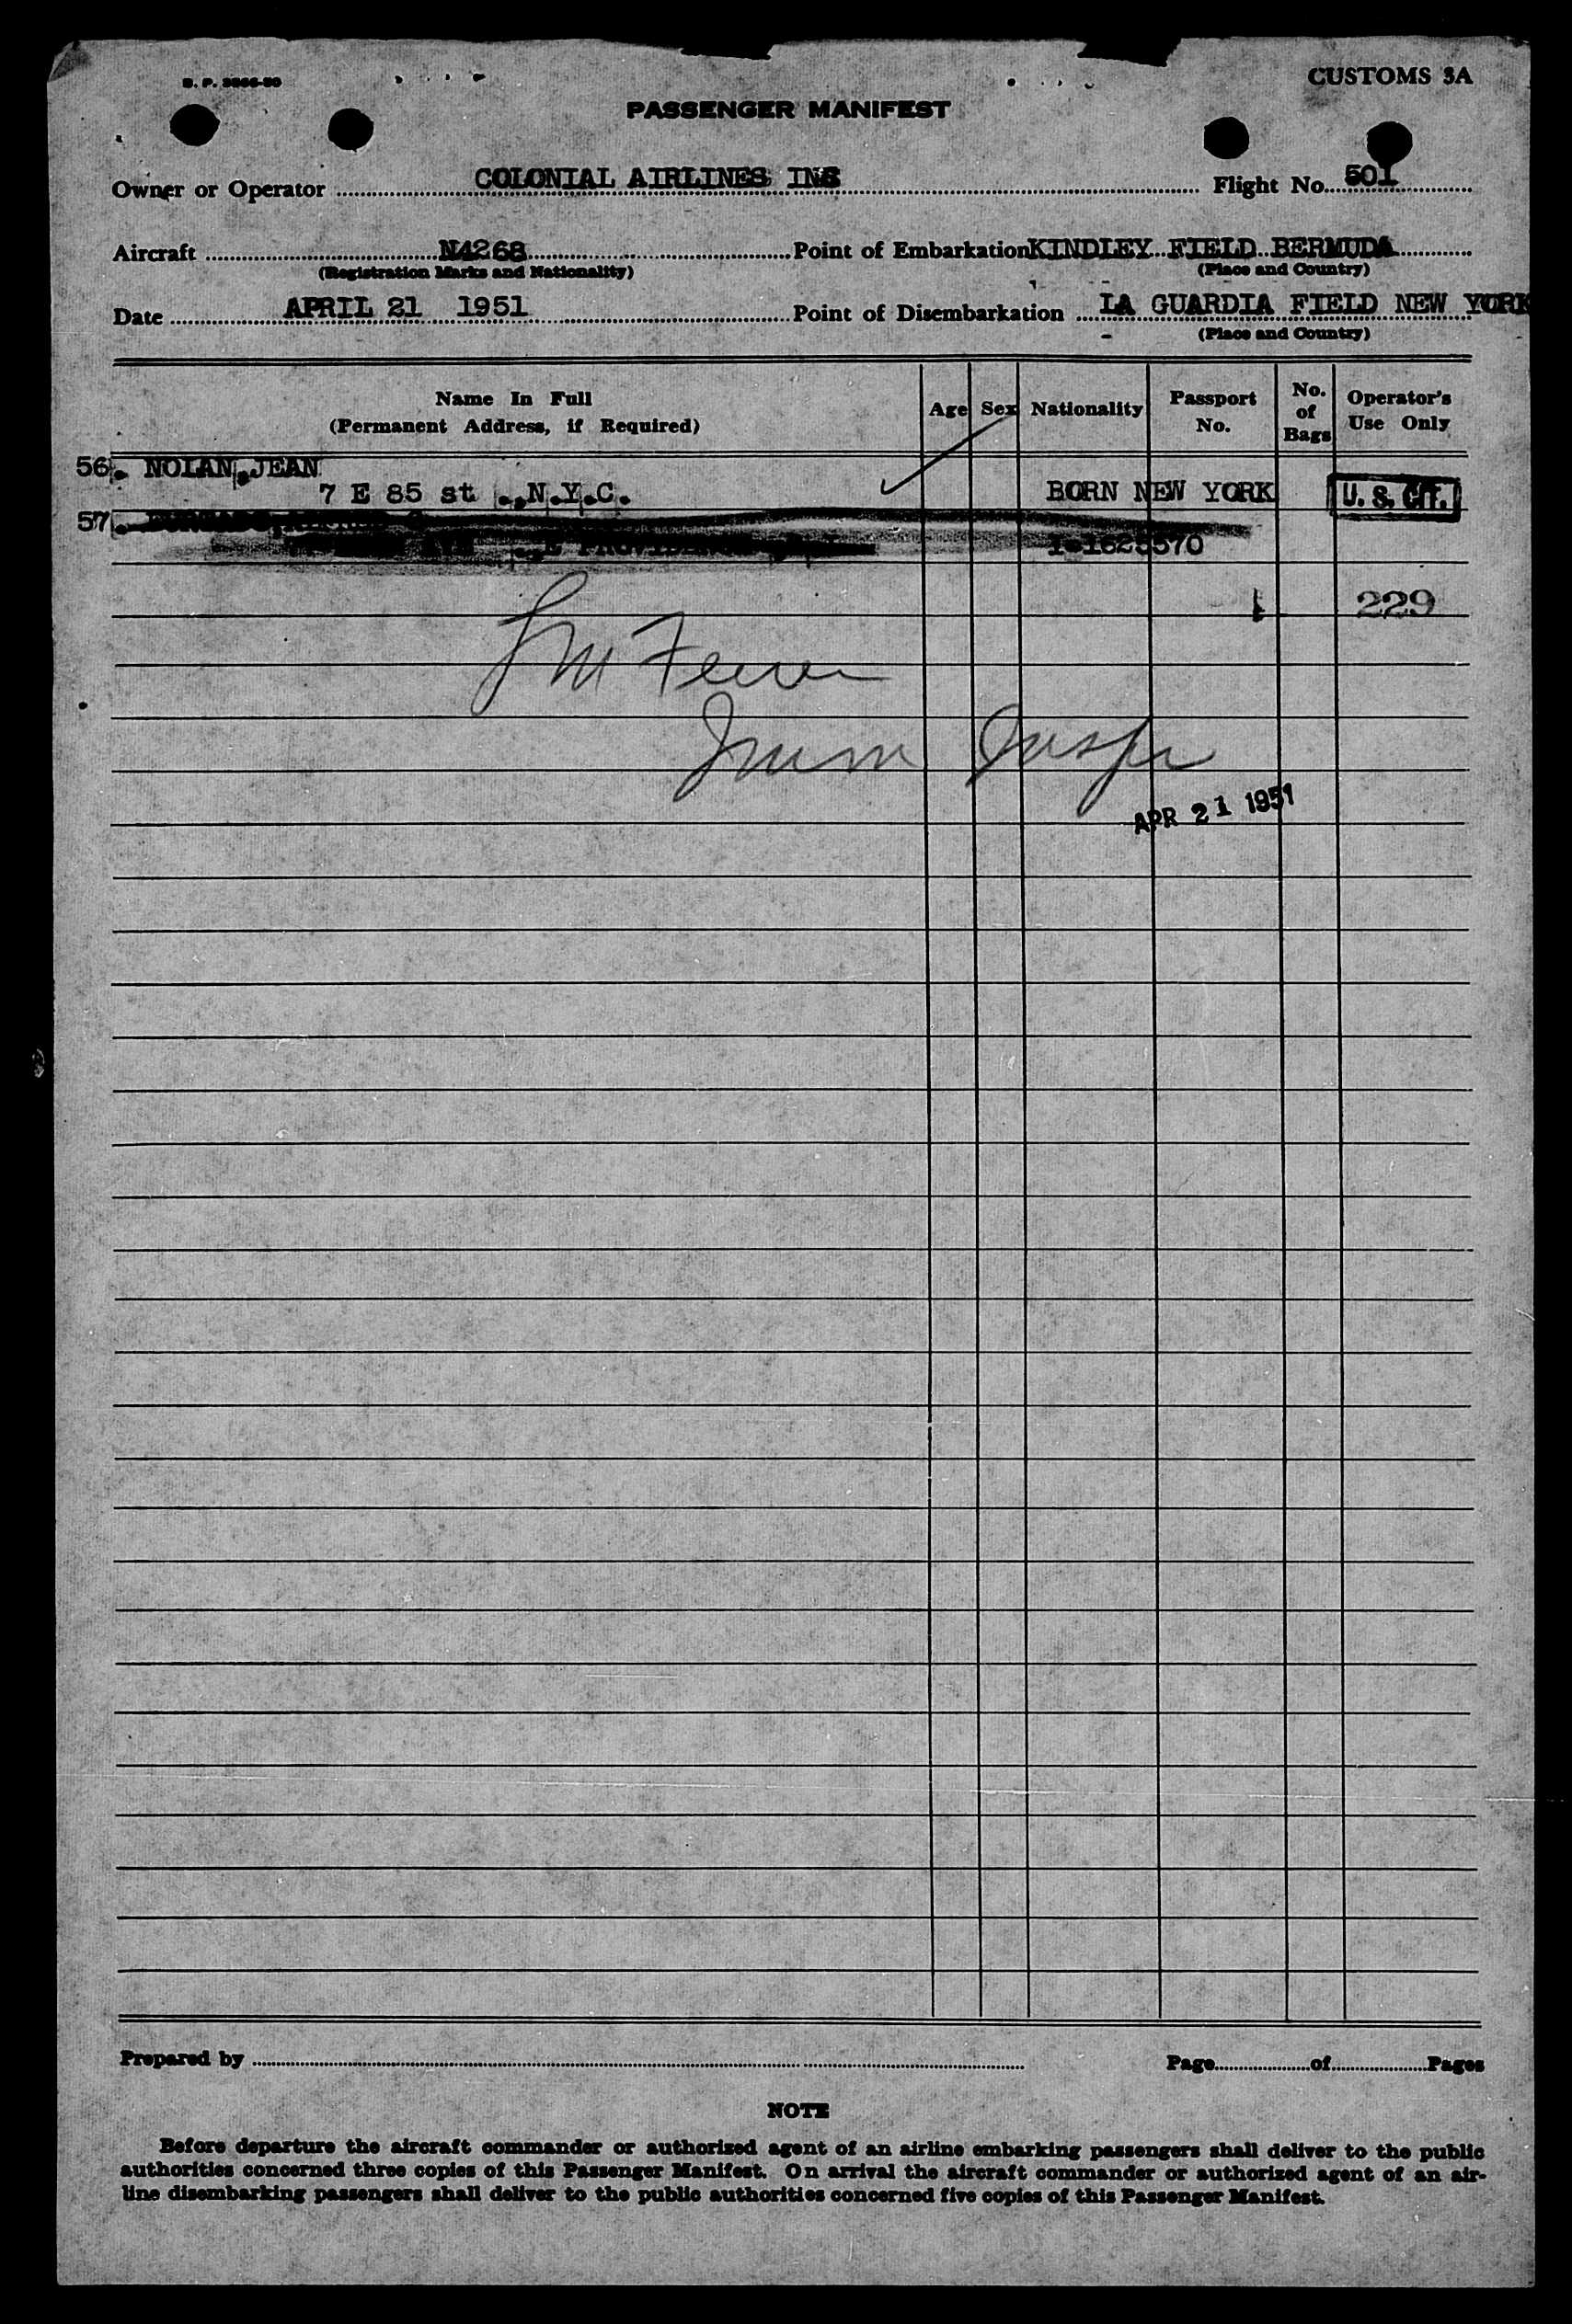 CUSTOMS 3A
PASSENGER MANIFEST
Owner or Operator COLONIAL AIRLINES INC Flight No. 501
Aircraft N4268 Point of Embarkation KINDLEY FIELD BERMUDA
(Registration Marks and Nationality) (Place and Country)
Date APRIL 21 1951 Point of Disembarkation LA GUARDIA FIELD NEW YORK
(Place and Country)
Name In Full Age Sex Nationality Passport No. No. of Bags Operator's Use Only
(Permanent Address, if Required)
56. NOLAN, JEAN
7 E 85 st ., N.Y.C. BORN NEW YORK U. S. CIT.
57.
229
Imm Inspr
APR 21 1951
Prepared by Page of Pages
NOTE
Before departure the aircraft commander or authorized agent of an airline embarking passengers shall deliver to the public
authorities concerned three copies of this Passenger Manifest. On arrival the aircraft commander or authorized agent of an air-
line disembarking passengers shall deliver to the public authorities concerned five copies of this Passenger Manifest.